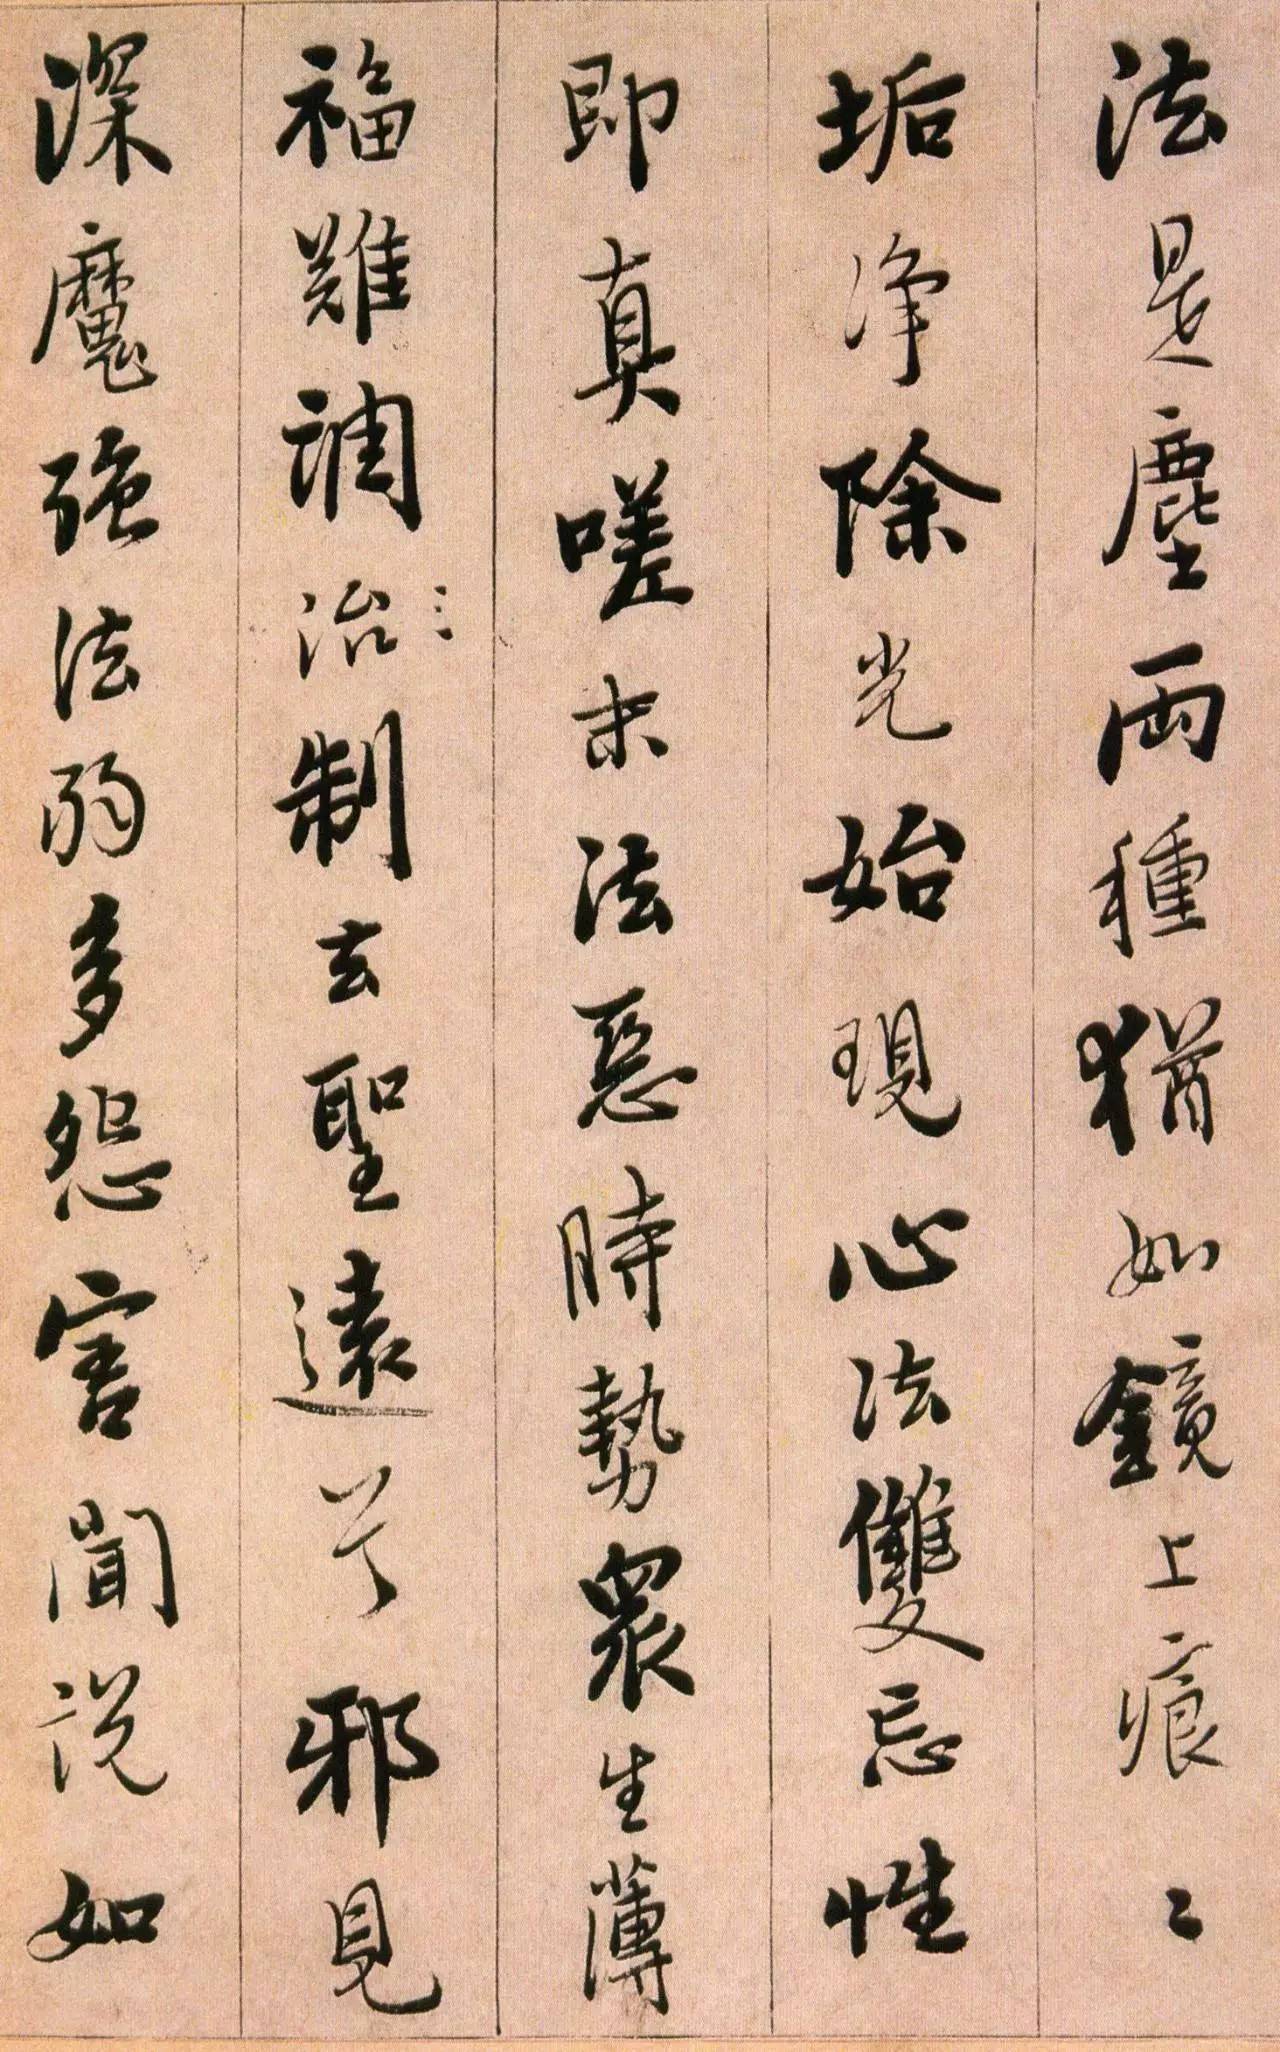 法是塵兩種猶如鏡上痕〻
垢淨除光始現心法雙忘性
即真嗟末法惡時勢衆生薄
福難調治制去聖遠兮邪見
深魔强法弱多怨害聞說如